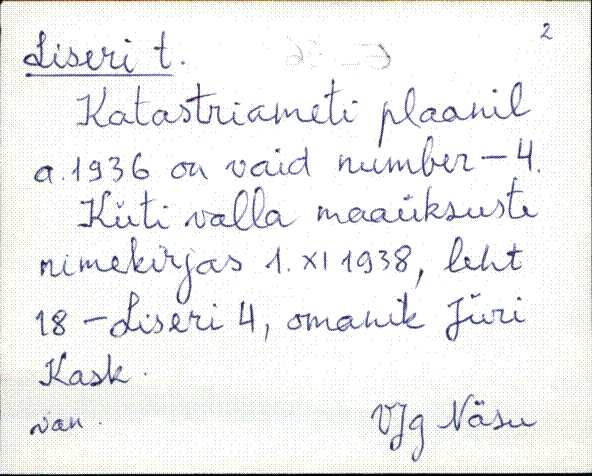 2
Liseri t.
Katastriameti plaanil
a. 1936 on vaid number - 4.
Küti valla maaüksuste
nimekirjas 1. XI 1938, leht
18 - Liseri 4, omanik Jüri
Kask.
van. VJg Näsu